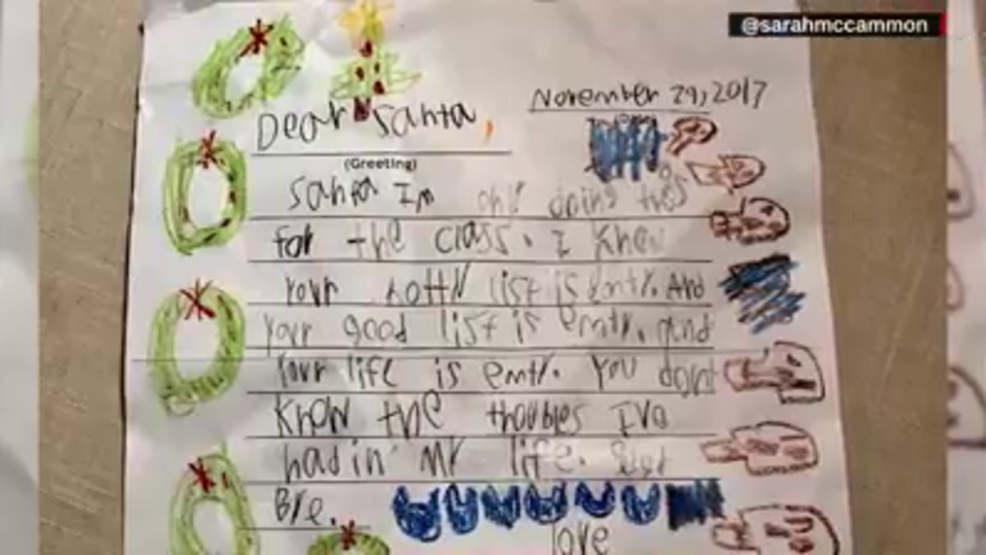 @sarahmccammon
November 29, 2017
Dear Santa,
(Greeting)
Santa Im only doing this
for the class. I know
your notty list is emty. And
your good list is emty. and
Your life is emty. You dont
know the troubles Ive
had in my life.
Bye.
love